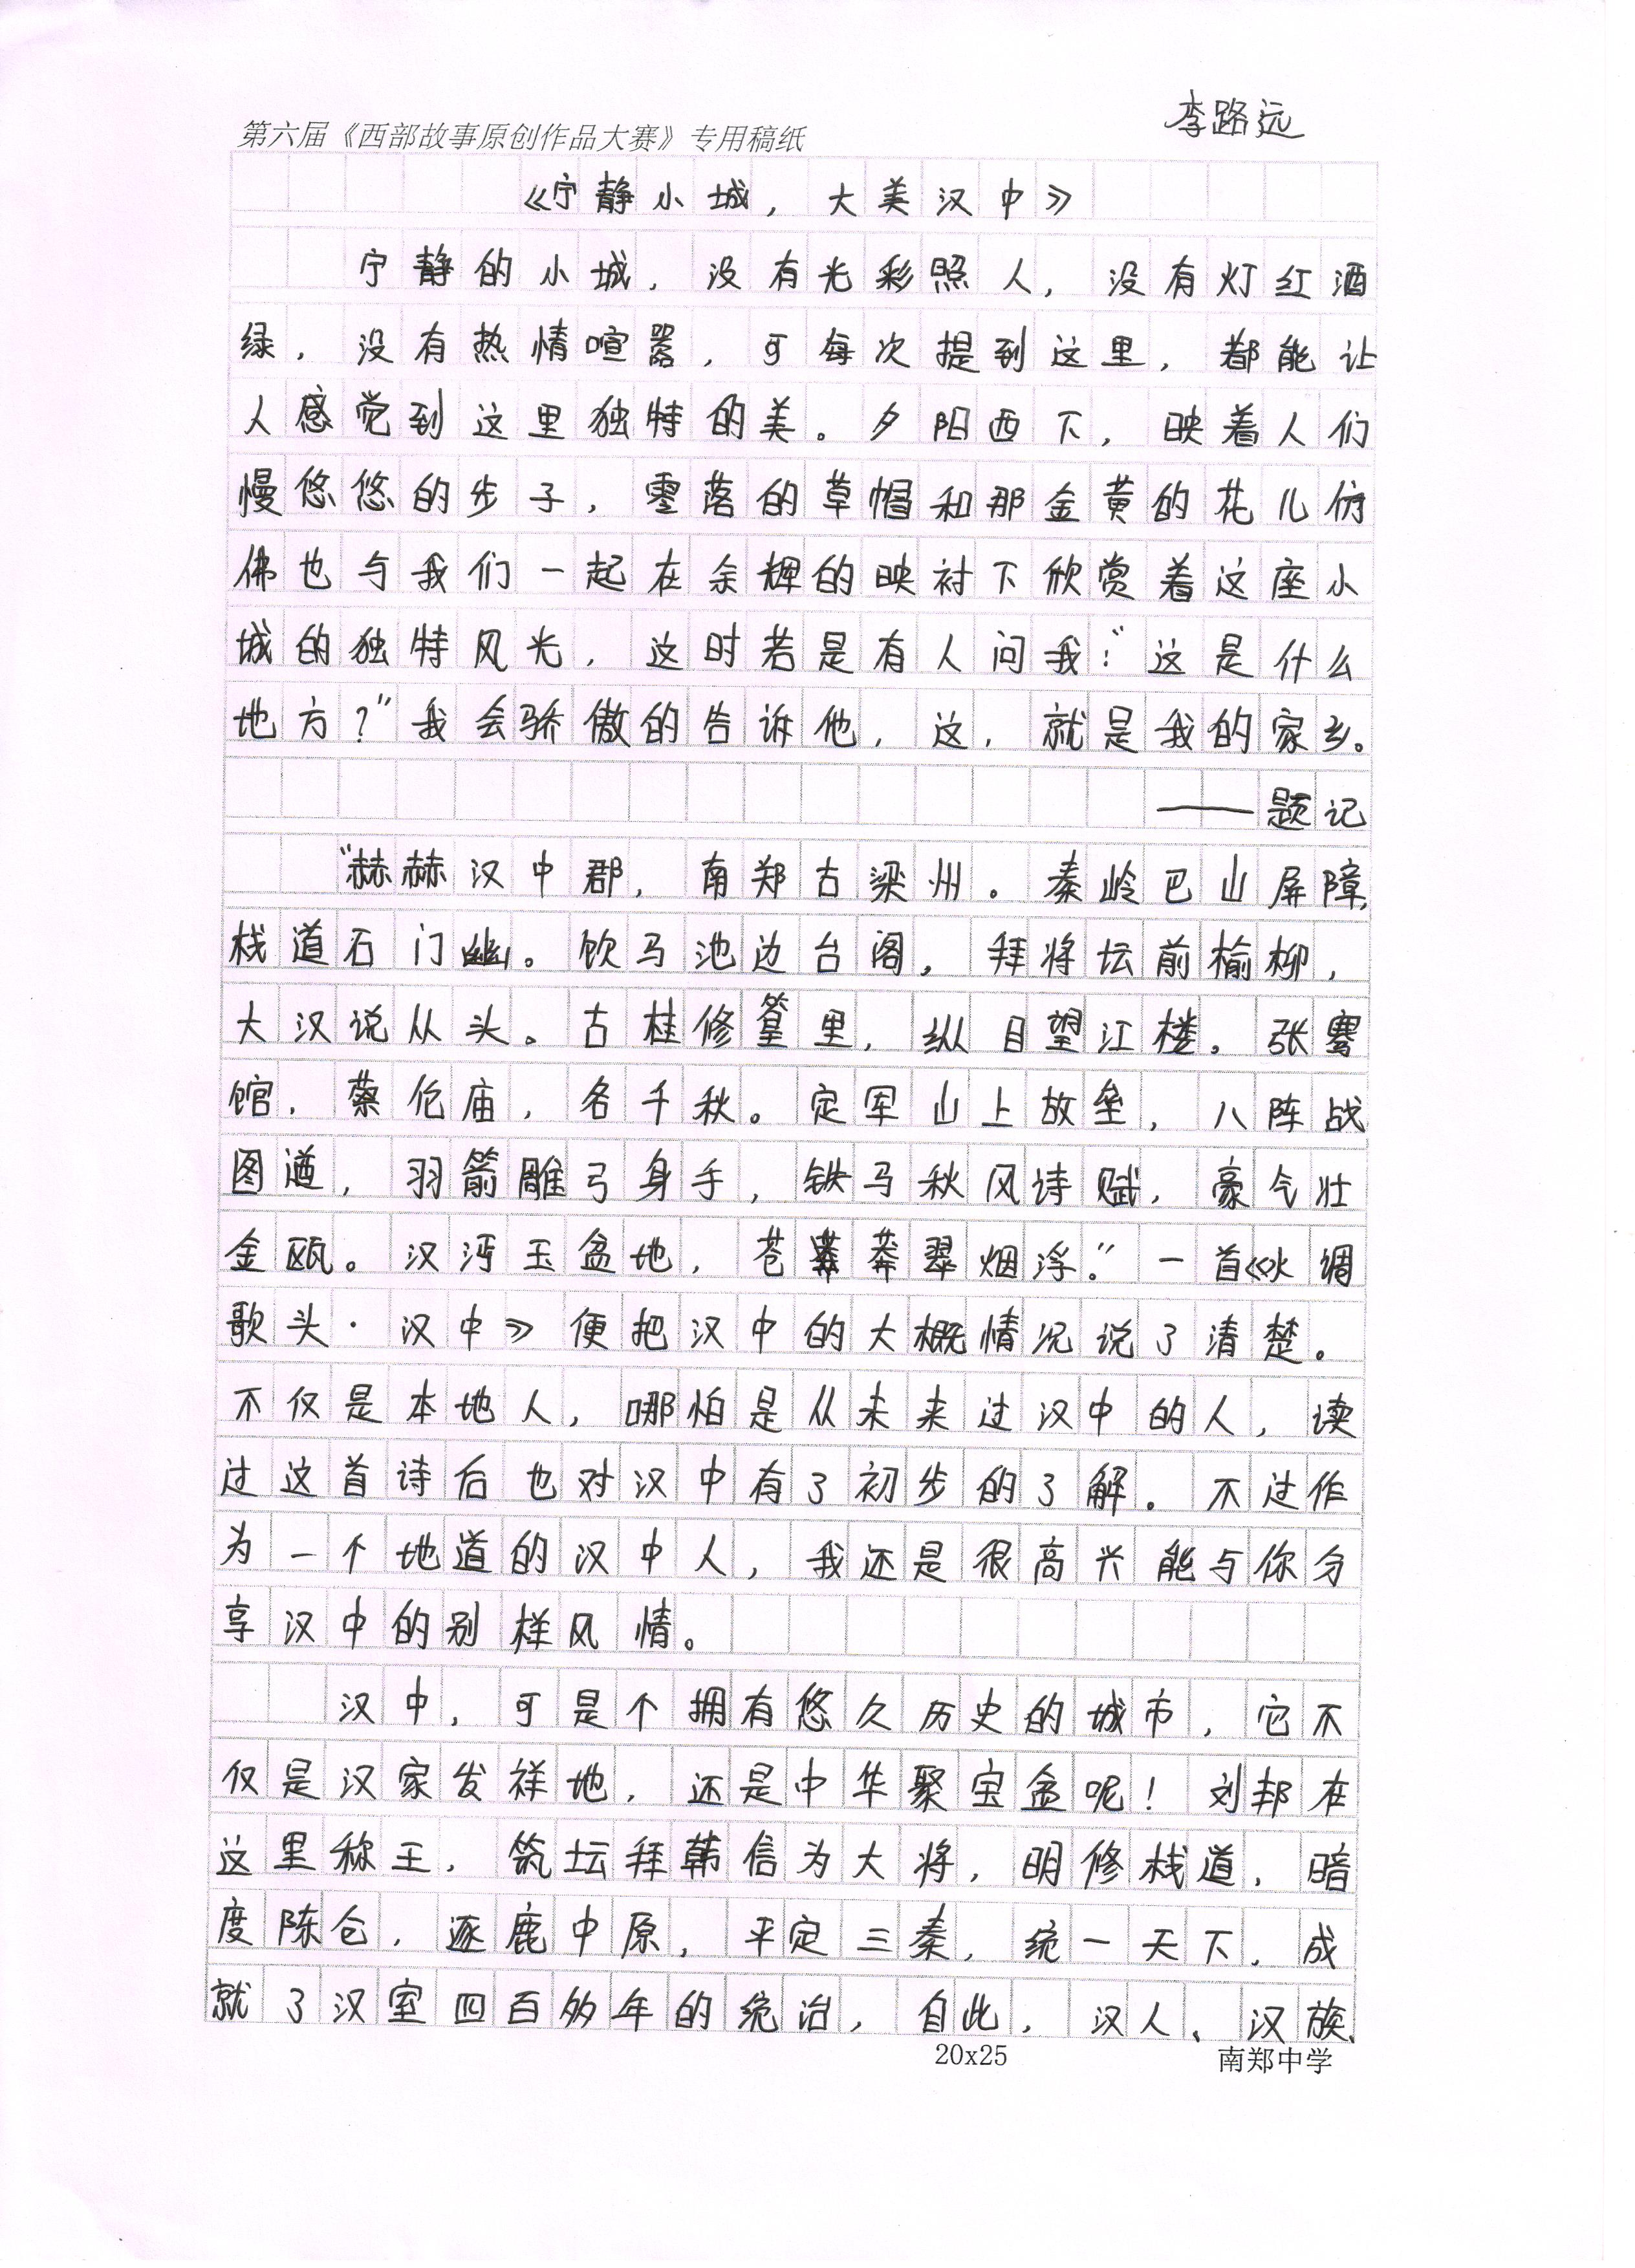 李路远
第六届《西部故事原创作品大赛》专用稿纸
《宁静小城，大美汉中》
宁静的小城，没有光彩照人，没有灯红酒
绿，没有热情喧嚣，可每次提到这里，都能让
人感觉到这里独特的美。夕阳西下，映着人们
慢悠悠的步子，零落的草帽和那金黄的花儿仿
佛也与我们一起在余辉的映衬下欣赏着这座小
城的独特风光，这时若是有人问我：“这是什么
地方？”我会骄傲的告诉他，这，就是我的家乡。
——题记
“赫赫汉中郡，南郑古梁州。秦岭巴山屏障，
栈道石门幽。饮马池边台阁，拜将坛前榆柳，
大汉说从头。古桂修篁里，纵目望江楼。张骞
馆，蔡伦庙，各千秋。定军山上故垒，八阵战
图遒，羽箭雕弓身手，铁马秋风诗赋，豪气壮
金瓯。汉沔玉盆地，苍莽莽翠烟浮。”一首《水调
歌头·汉中》便把汉中的大概情况说了清楚。
不仅是本地人，哪怕是从未来过汉中的人，读
过这首诗后也对汉中有了初步的了解。不过作
为一个地道的汉中人，我还是很高兴能与你分
享汉中的别样风情。
汉中，可是个拥有悠久历史的城市，它不
仅是汉家发祥地，还是中华聚宝盆呢！刘邦在
这里称王，筑坛拜韩信为大将，明修栈道，暗
度陈仓，逐鹿中原，平定三秦，统一天下，成
就了汉室四百多年的统治，自此，汉人、汉族、
20x25
南郑中学